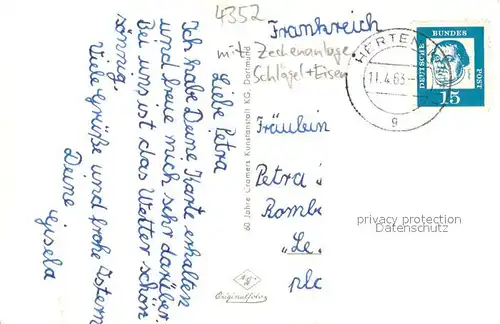 4352
Frankreich
mit Zechenanlage
Schlägel + Eisen
HERTEN
11.4.63
g
DEUTSCHE BUNDES POST
15
Liebe Petra
Ich habe Deine Karte erhalten
und freue mich sehr darüber.
Bei uns ist das Wetter schon
sonnig.
Viele Grüße und frohe Ostern
Deine
Gisela
60 Jahre Cramers Kunstanstalt KG. Dortmund
Originalfoto
Fräulein
Petra
Rombe
"Le
plc
privacy protection
Datenschutz